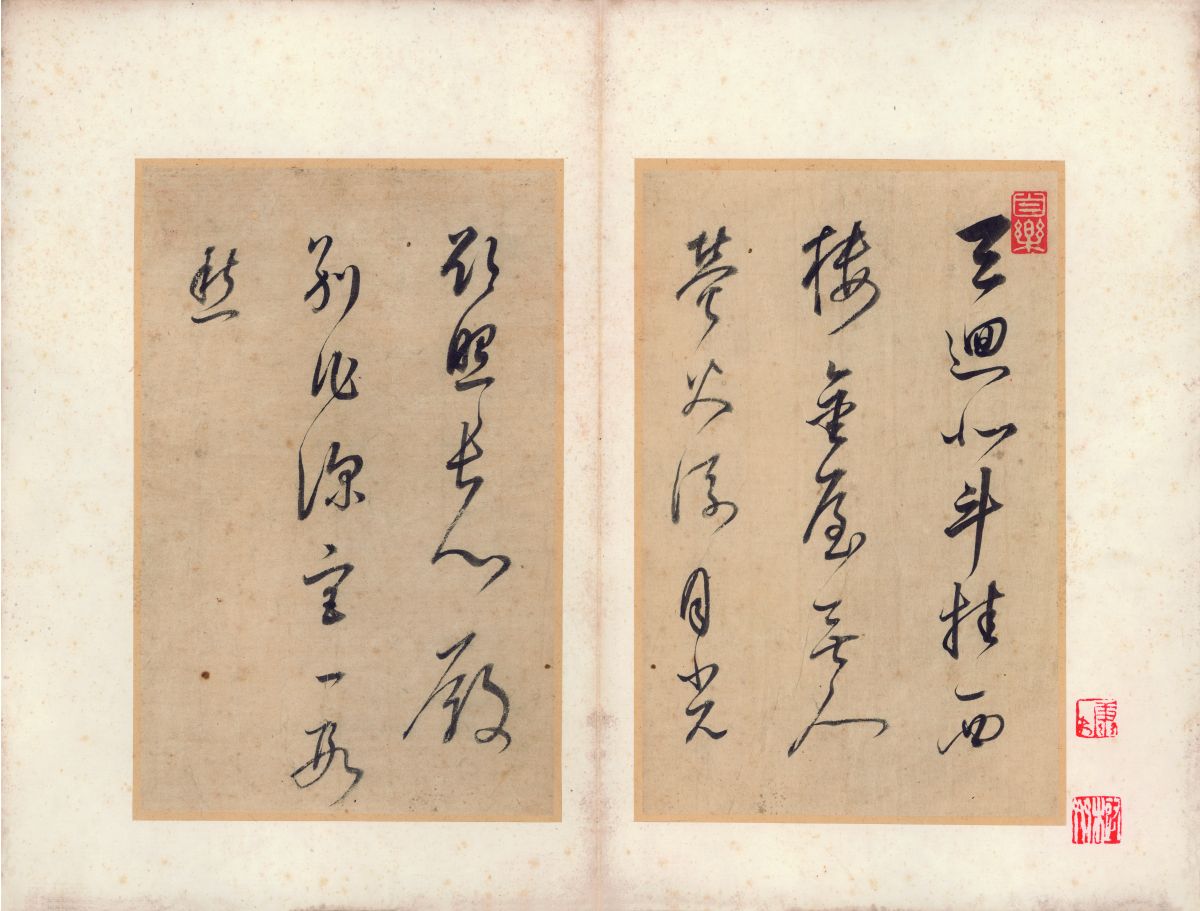 天迴北斗挂西
樓金屋無人
螢火流月光
欲照長門殿
別作深宮一段
愁